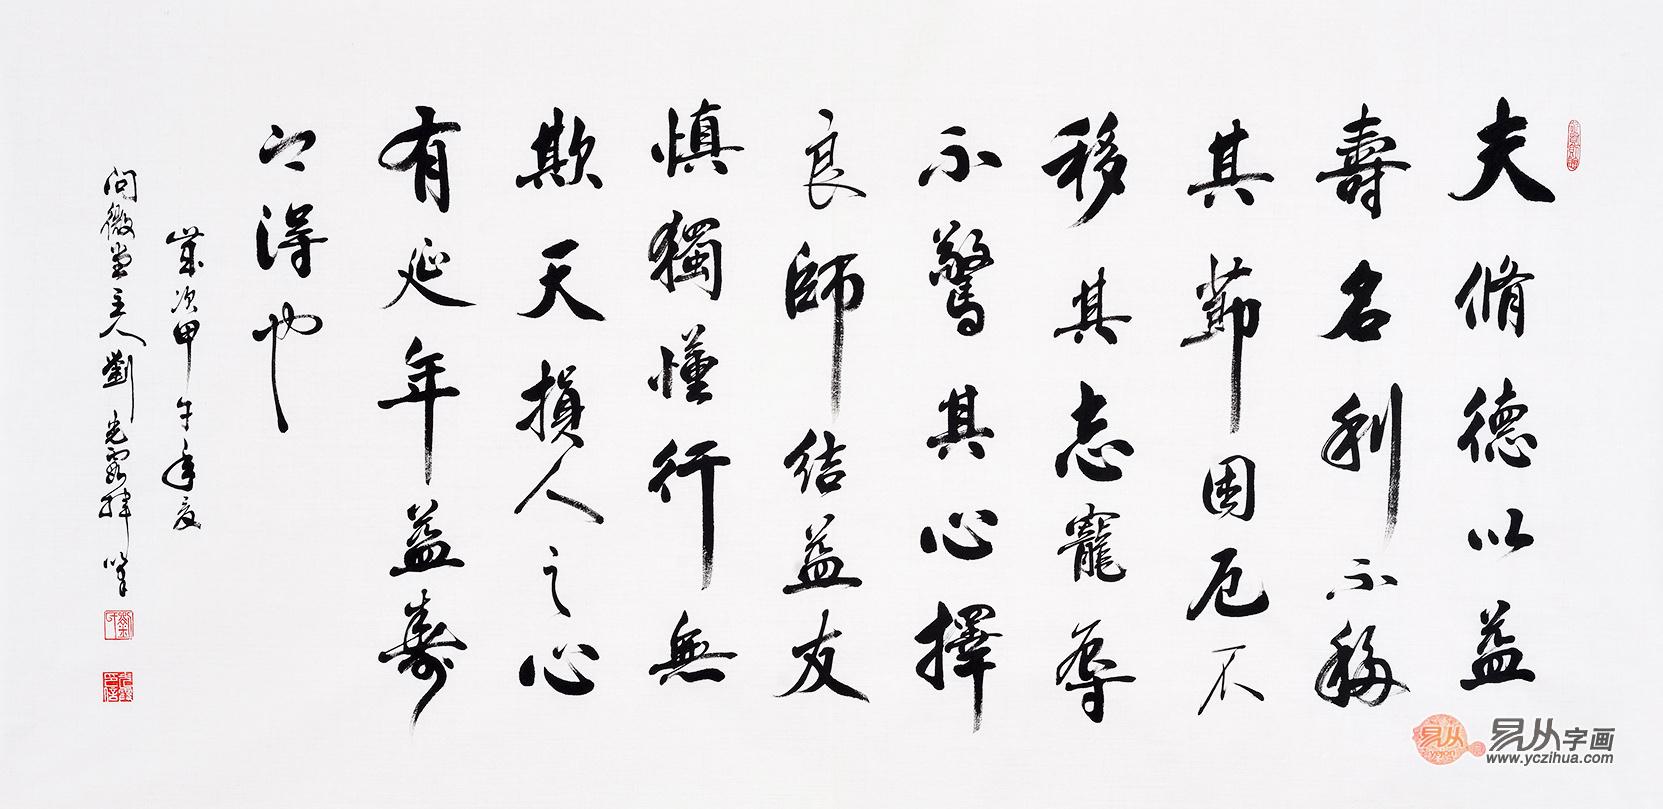 夫脩德以益
壽名利不移
其節困厄不
移其志寵辱
不驚其心擇
良師結益友
慎獨慬行無
欺天損人之心
有延年益壽
之得也
歲次甲午年夏
問微堂主人劉光霞拜筆
易从字画
yczihua.com
www.yczihua.com